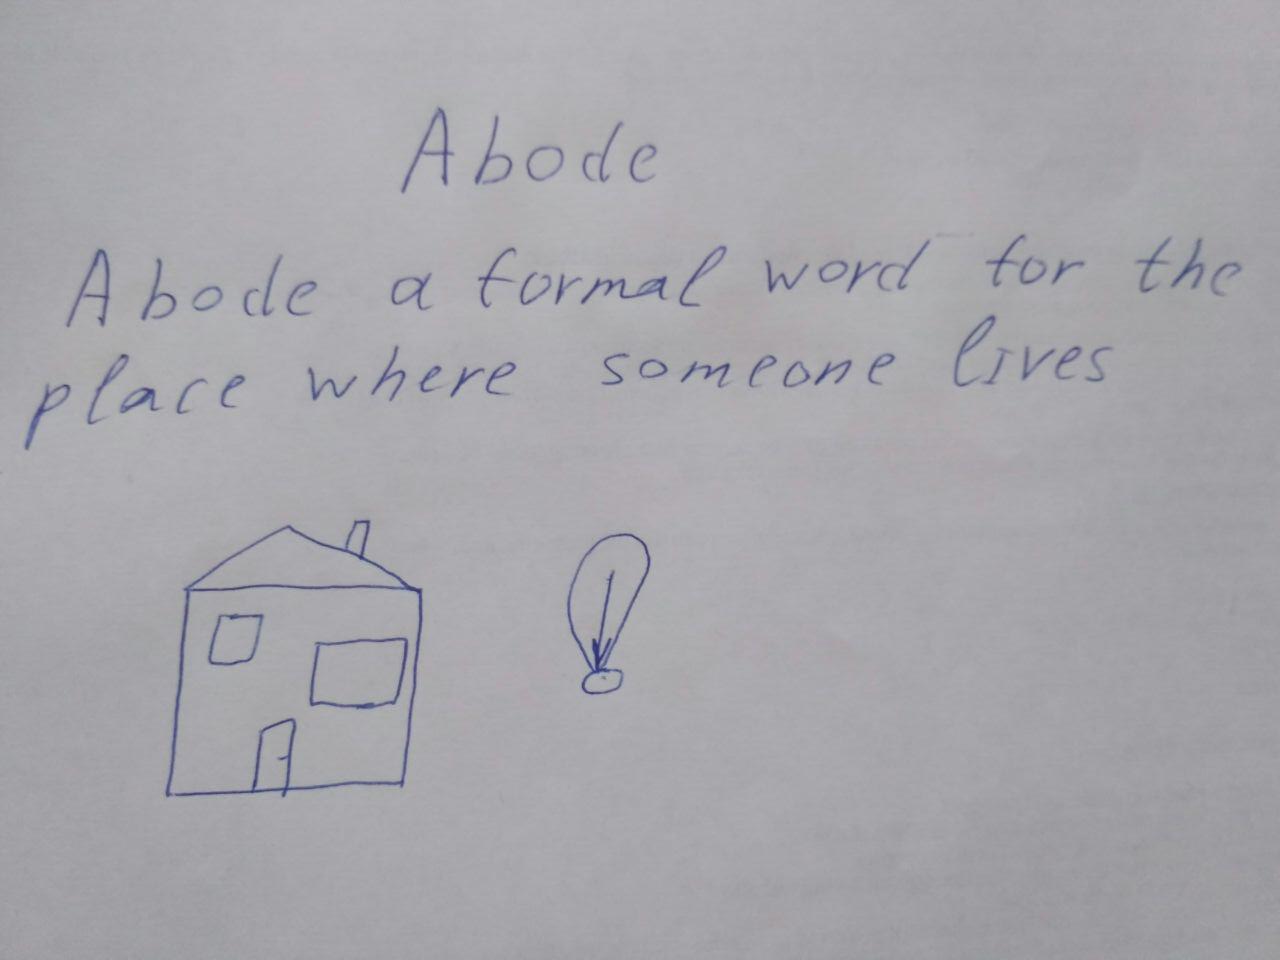 Abode
Abode a formal word for the
place where someone lives